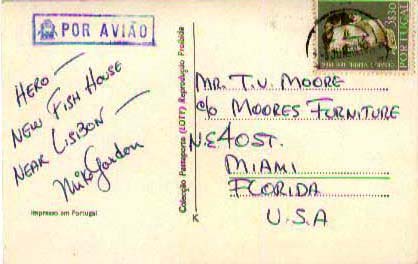 POR AVIÃO
HERO—
NEW FISH HOUSE
NEAR LISBON—
Mike Gordon
Impresso em Portugal
Colecção Passaporte (LOTY) Reprodução Proibida
K
3$30
PORTUGAL
MR. T.V. MOORE
c/o MOORES FURNITURE
N.E 40 ST.
MIAMI
FLORIDA
U.S.A